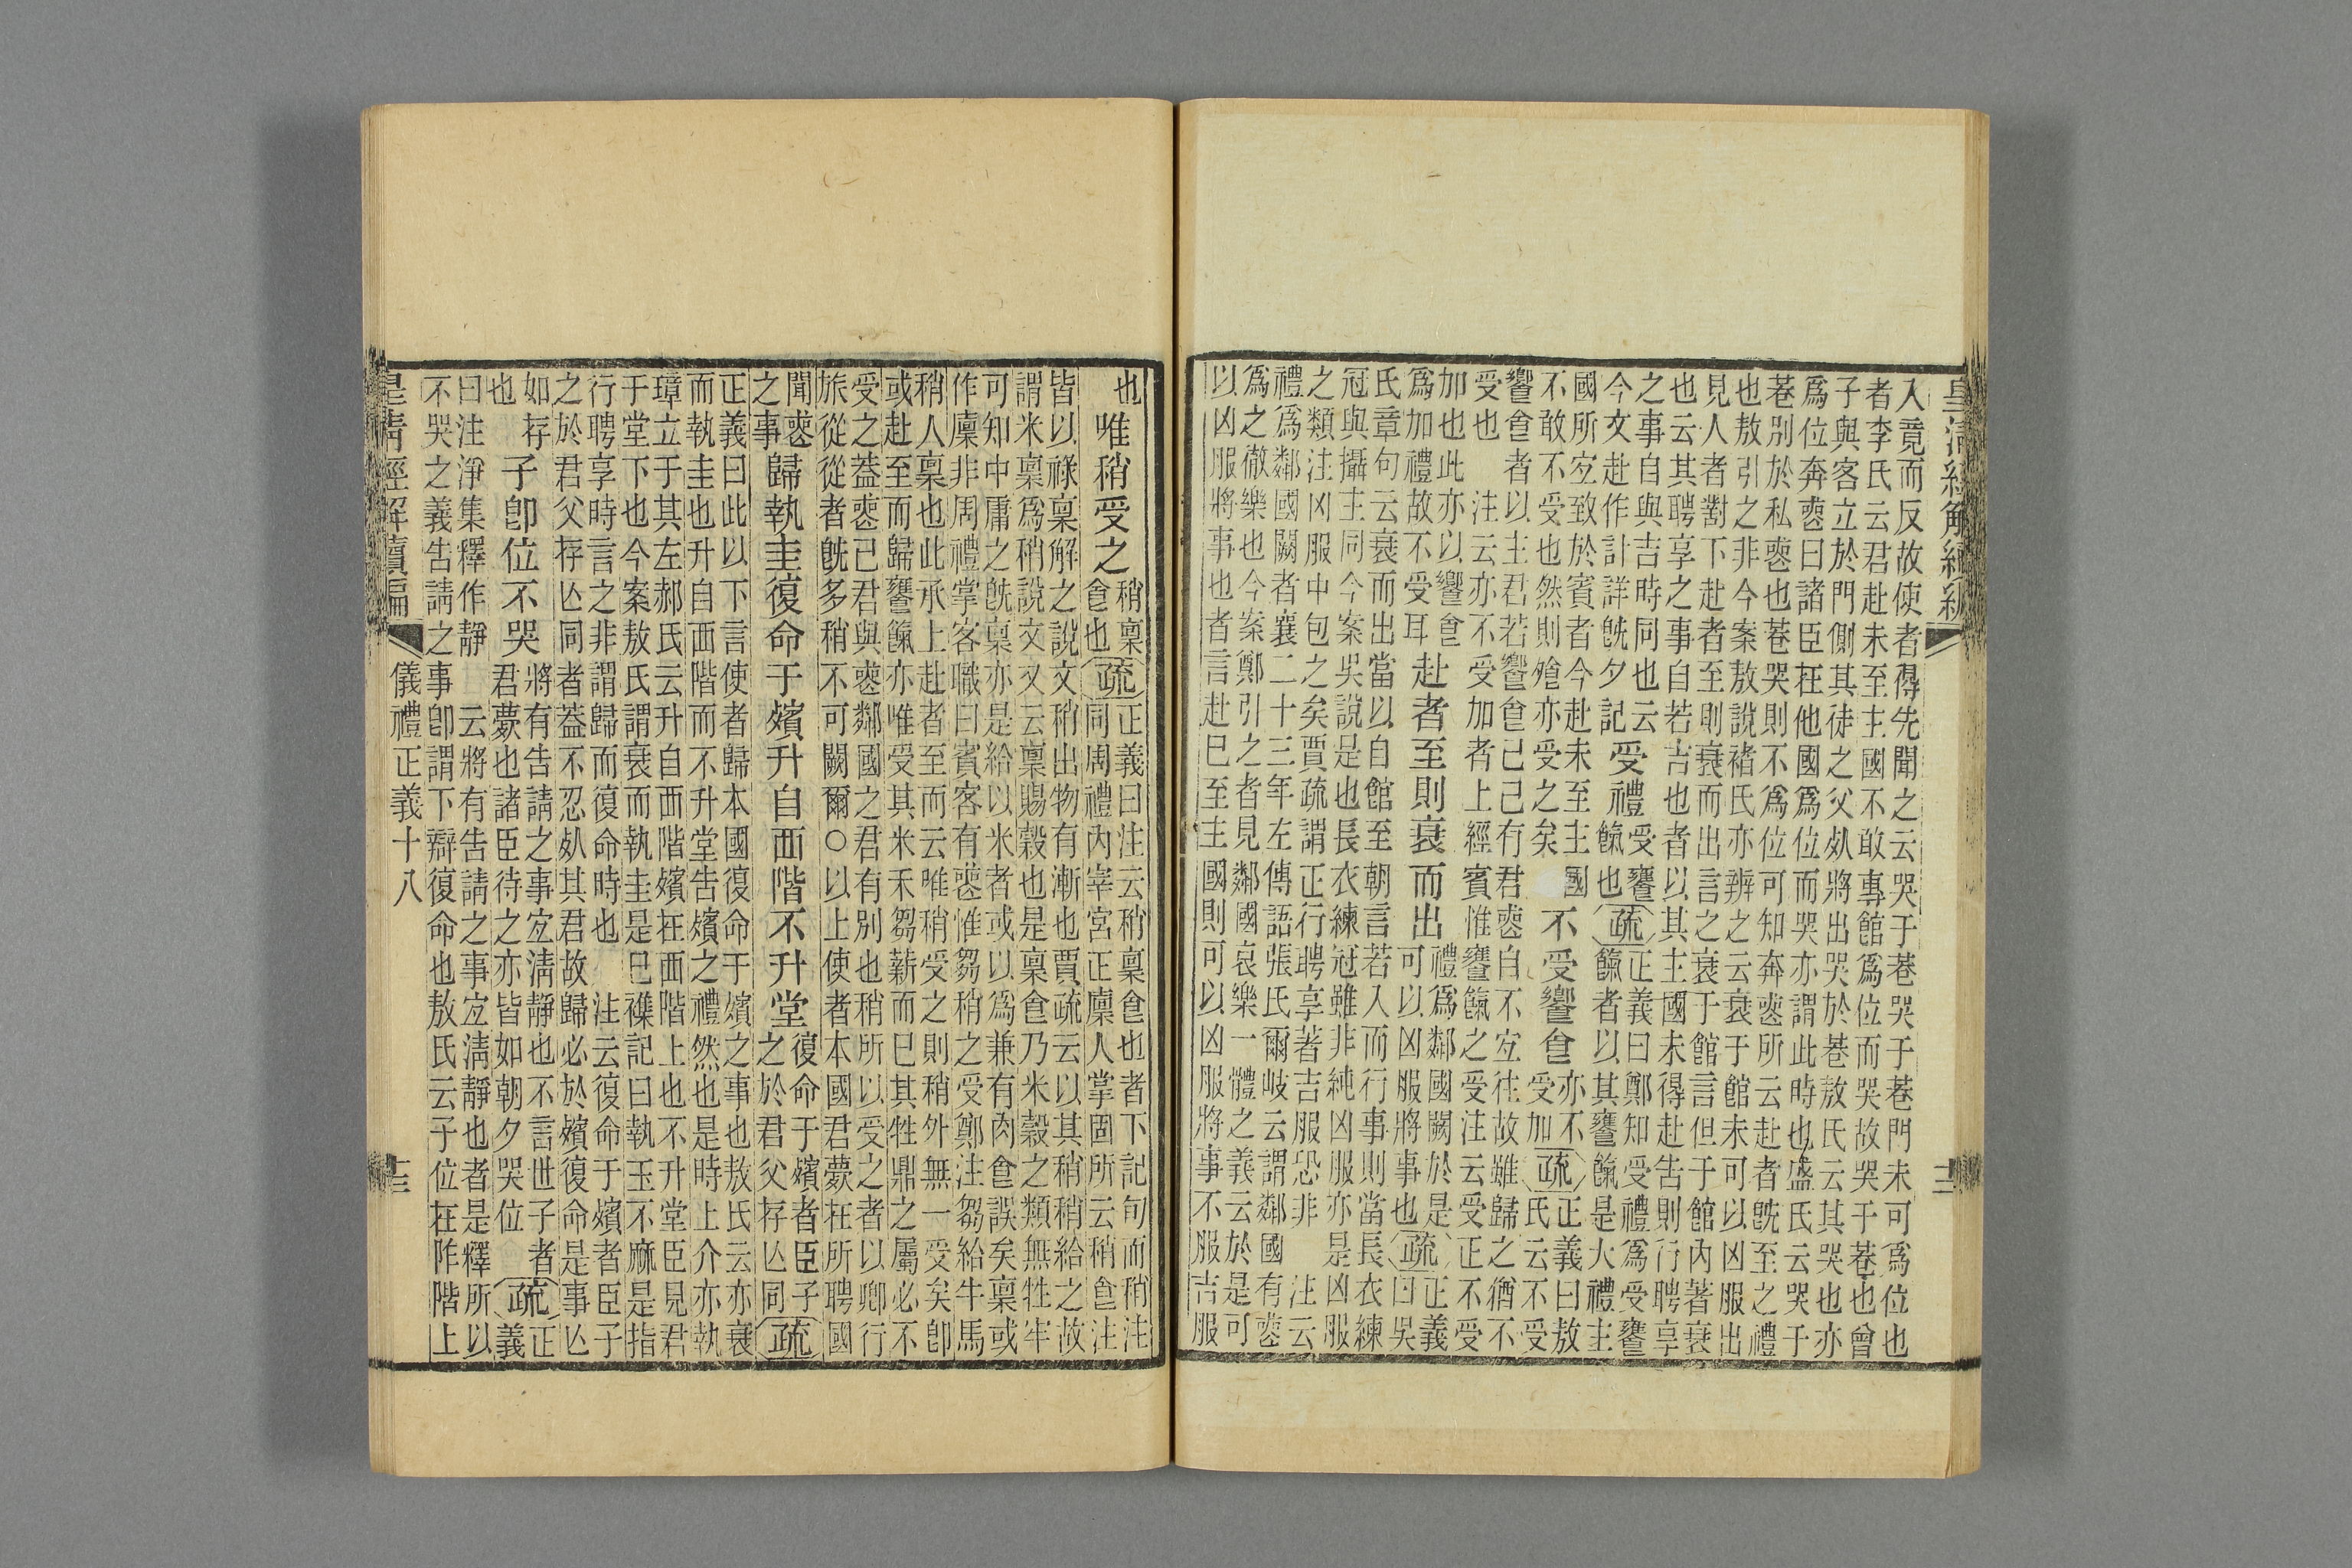 皇清經解續編
十二
入竟而反故使者得先聞之云哭于巷哭于巷門未可爲位也
者李氏云君赴未至主國不敢專館爲位而哭故哭于巷也曾
子與客立於門側其徒之父𣦸將出哭於巷敖氏云其哭也亦
爲位奔喪曰諸臣在他國爲位而哭亦謂此時也盛氏云哭于
巷別於私喪也巷哭則不爲位可知奔喪所云赴者旣至之禮
也敖引之非今案敖說褚氏亦辨之云衰于館未可以凶服出
見人者對下赴者至則衰而出言之衰于館言但于館內著衰
也云其聘享之事自若吉也者以其主國未得赴告則行聘享
之事自與吉時同也云
今文赴作訃詳旣夕記
受禮
受饔
餼也
疏
正義曰鄭知受禮爲受饔
餼者以其饔餼是大禮主
國所宐致於賓者今赴未至主國
不敢不受也然則飧亦受之矣
不受饗食
亦不
受加
疏
正義曰敖
氏云不受
饗食者以主君若饗食己己有君喪自不宐往故雖歸之猶不
受也 注云亦不受加者上經賓惟饔餼之受注云受正不受
加也此亦以饗食
爲加禮故不受耳
赴者至則衰而出
禮爲鄰國闕於是
可以凶服將事也
疏
正義
曰吳
氏章句云衰而出當以自館至朝言若入而行事則當長衣練
冠與攝主同今案吳說是也長衣練冠雖非純凶服亦是凶服
之類注凶服中包之矣賈疏謂正行聘享著吉服恐非 注云
禮爲鄰國闕者襄二十三年左傳語張氏爾岐云謂鄰國有喪
爲之徹樂也今案鄭引之者見鄰國哀樂一體之義云於是可
以凶服將事也者言赴巳至主國則可以凶服將事不服吉服
也
唯稍受之
稍稟
食也
疏
正義曰注云稍稟食也者下記句而稍注
同周禮內宰宮正廩人掌固所云稍食注
皆以祿稟解之說文稍出物有漸也賈疏云以其稍稍給之故
謂米稟爲稍說文又云稟賜穀也是稟食乃米穀之類無牲牢
可知中庸之旣稟亦是給以米者或以爲兼有肉食誤矣稟或
作廩非周禮掌客職曰賓客有喪惟芻稍之受鄭注芻給牛馬
稍人稟也此承上赴者至而云唯稍受之則稍外無一受矣卽
或赴至而歸饔餼亦唯受其米禾芻薪而巳其牲鼎之屬必不
受之葢喪己君與喪鄰國之君有別也稍所以受之者以卿行
旅從從者旣多稍不可闕爾○以上使者本國君薨在所聘國
聞喪
之事
歸執圭復命于殯升自西階不升堂
復命于殯者臣子
之於君父存亾同
疏
正義曰此以下言使者歸本國復命于殯之事也敖氏云亦衰
而執圭也升自西階而不升堂告殯之禮然也是時上介亦執
璋立于其左郝氏云升自西階殯在西階上也不升堂臣見君
于堂下也今案敖氏謂衰而執圭是巳襍記曰執玉不麻是指
行聘享時言之非謂歸而復命時也 注云復命于殯者臣子
之於君父存亾同者葢不忍𣦸其君故歸必於殯復命是事亾
如存
也
子卽位不哭
將有告請之事宐淸靜也不言世子者
君薨也諸臣待之亦皆如朝夕哭位
疏
正
義
曰注淨集釋作靜 云將有告請之事宐淸靜也者是釋所以
不哭之義告請之事卽謂下辯復命也敖氏云子位在阼階上
皇淸經解續編
儀禮正義十八
十三